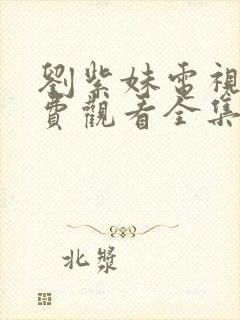 劉紫妹電視
費觀看全集
北漿